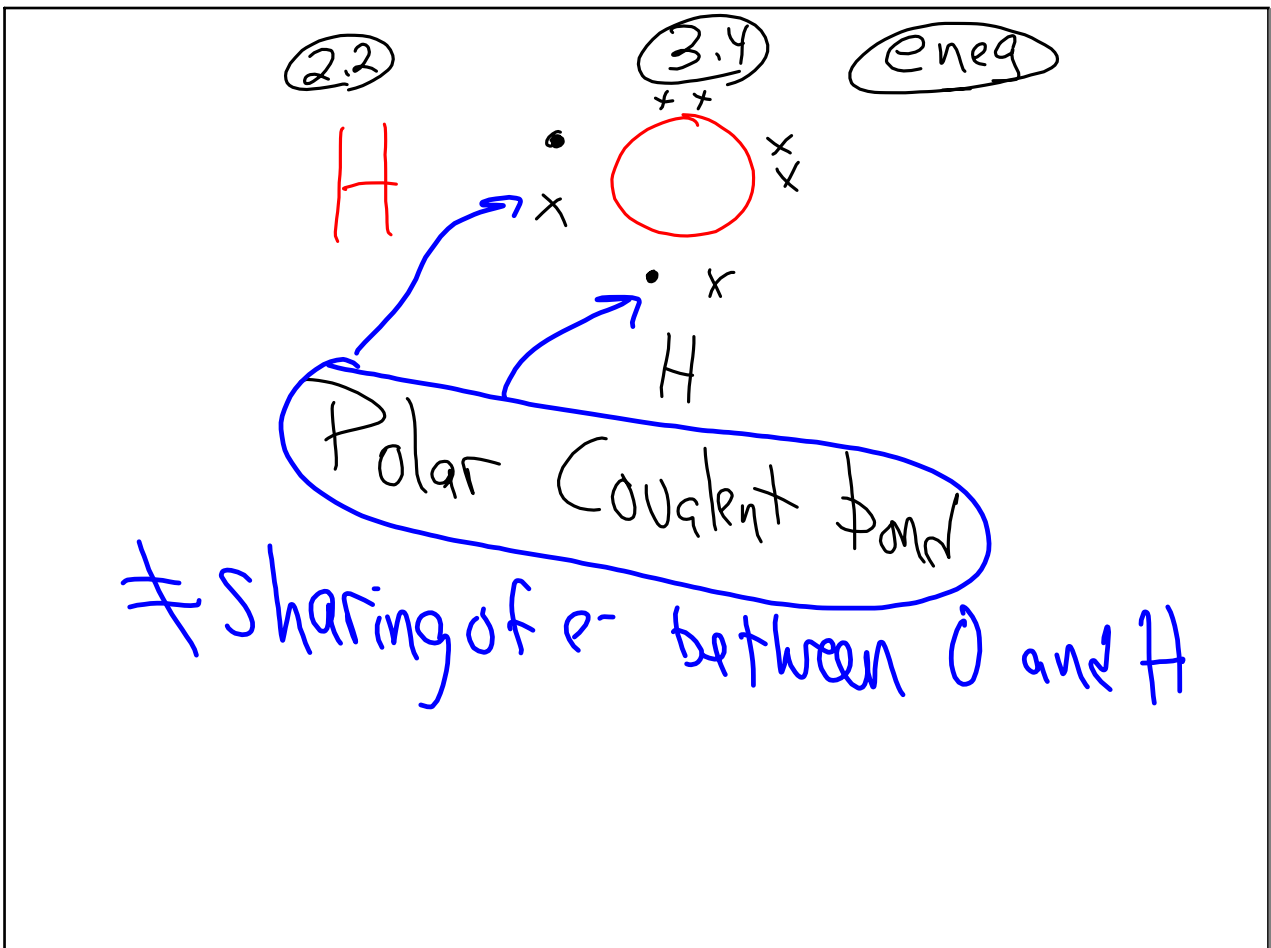 2.2 3.4 eneg
H O
H
Polar Covalent bond
≠ sharing of e- between O and H